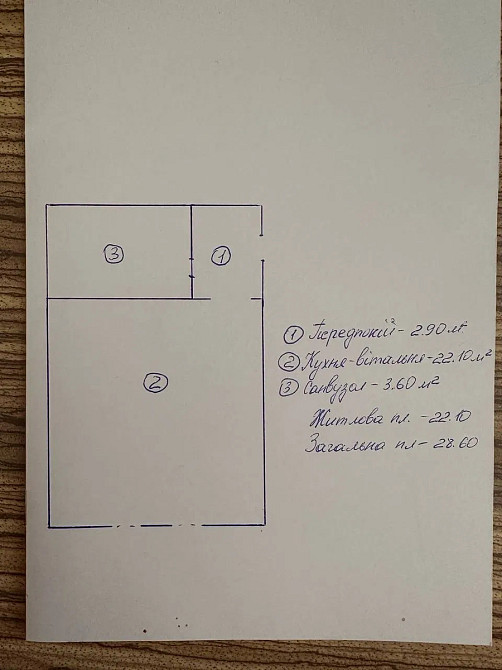 3
1
2
1 Передпокій - 2.90 м²
2 Кухня-вітальня - 22.10 м²
3 Санвузол - 3.60 м²
Житлова пл. - 22.10
Загальна пл - 28.60